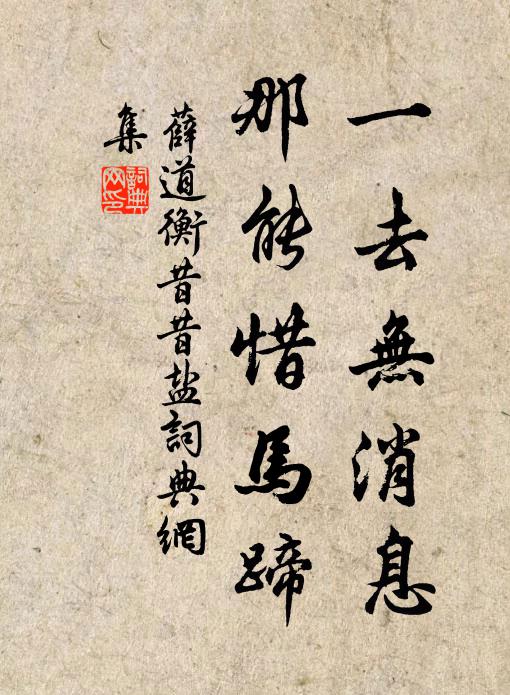 一去無消息
那能惜馬蹄
薛道衡昔昔盐詞典網
集
詞典
网印